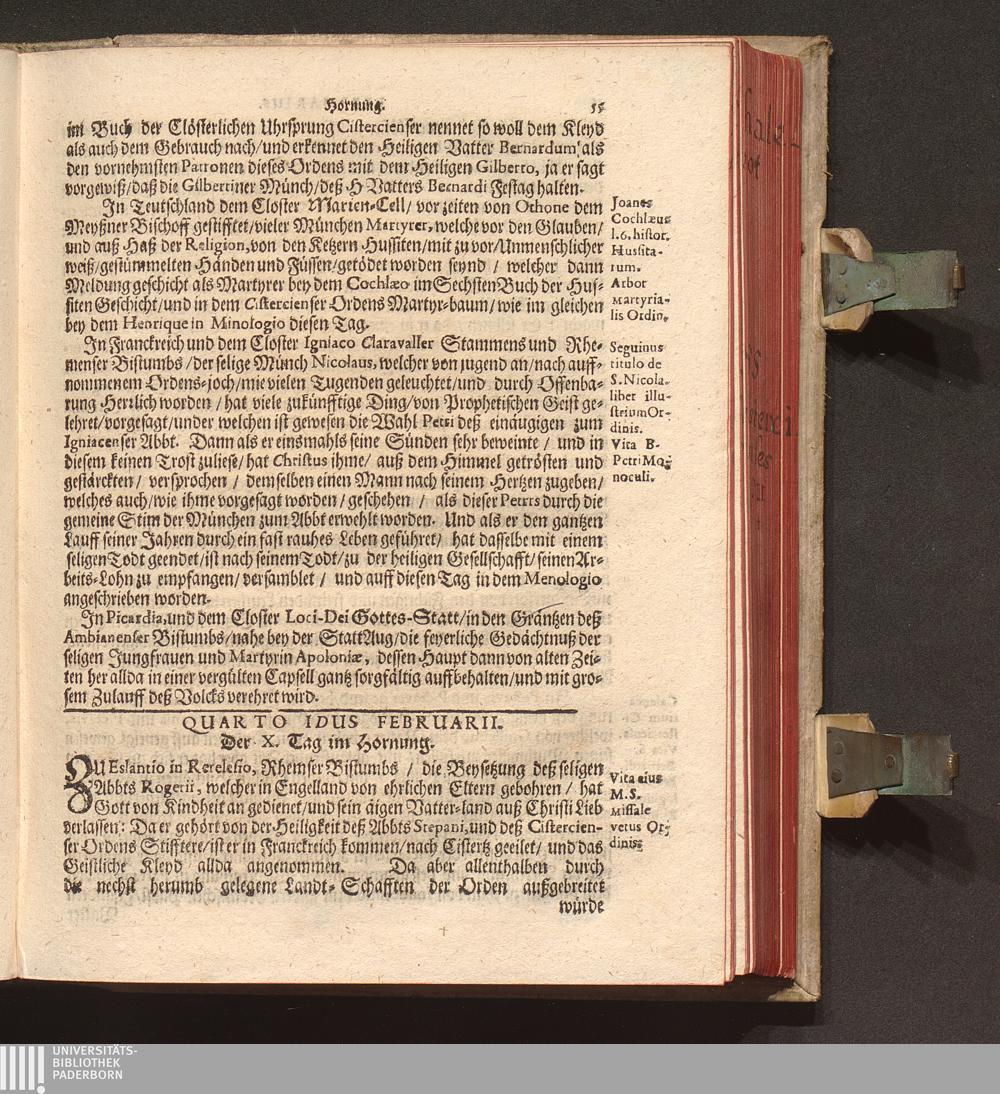 Hornung. 55
im Buch der Clösterlichen Uhrsprung Cistercienser nennet so woll dem Kleyd
als auch dem Gebrauch nach/und erkennet den Heiligen Vatter Bernardum als
den vornehmsten Patronen dieses Ordens mit dem Heiligen Gilberto, ja er sagt
vorgewiß/daß die Gilbertiner Münch/deß H Vatters Bernardi Festag halten.
In Teutschland dem Closter Marien-Cell/ vor zeiten von Othone dem
Meyßner Bischoff gestifftet/vieler München Martyrer, welche vor den Glauben/
und auß Haß der Religion, von den Ketzern Hussiten/mit zu vor/Unmenschlicher
weiß/gestümmelten Händen und Füssen/getödet worden seynd / welcher dann
Meldung geschicht als Martyrer bey dem Cochlæo im Sechsten Buch der Hus-
siten Geschicht/und in dem Cistercienser Ordens Martyr-baum/ wie im gleichen
bey dem Henrique in Minologio diesen Tag.
Joanes
Cochlæus
l.6. histor.
Hussita-
rum.
Arbor
Martyria-
lis Ordin.
In Franckreich und dem Closter Igniaco Claravaller Stammens und Rhe-
menser Bistumbs /der selige Münch Nicolaus, welcher von jugend an/nach auff-
nommenem Ordens-joch/mie vielen Tugenden geleuchtet/und durch Offenba-
rung Herzlich worden / hat viele zukünfftige Ding/von Prophetischen Geist ge-
lehret/vorgesagt/under welchen ist gewesen die Wahl Petri deß einäugigen zum
Igniacenser Abbt. Dann als er einsmahls seine Sünden sehr beweinte / und in
diesem keinen Trost zuliese/ hat Christus ihme/ auß dem Himmel getrösten und
gestärckten/ versprochen / demselben einen Mann nach seinem Hertzen zugeben/
welches auch/wie ihme vorgesagt worden/ geschehen / als dieser Petrrs durch die
gemeine Stim der München zum Abbt erwehlt worden. Und als er den gantzen
Lauff seiner Jahren durch ein fast rauhes Leben geführet/ hat dasselbe mit einem
seligen Todt geendet/ist nach seinem Todt/zu der heiligen Gesellschafft/ seinen Ar-
beits-Lohn zu empfangen/ versamblet / und auff diesen Tag in dem Menologio
angeschrieben worden.
Seguinus
titulo de
S. Nicola.
liber illu-
strium Or-
dinis.
Vita B.
Petri Mo-
noculi.
In Picardia, und dem Closter Loci-Dei Gottes-Statt/in den Gräntzen deß
Ambianenser Bistumbs/nahe bey der Statt Aug/die feyerliche Gedächtnuß der
seligen Jungfrauen und Martyrin Apoloniæ, dessen Haupt dann von alten Zei-
ten her allda in einer vergülten Capsell gantz sorgfältig auffbehalten/und mit gro-
sem Zulauff deß Volcks verehret wird.
QUARTO IDUS FEBRUARII.
Der X. Tag im Hornung.
ZU Eslantio in Rerelesio, Rhemser Bistumbs / die Beysetzung deß seligen
Abbts Rogerii, welcher in Engelland von ehrlichen Eltern gebohren / hat
Gott von Kindheit an gedienet/und sein äigen Vatter-land auß Christi Lieb
verlassen: Da er gehört von der Heiligkeit deß Abbts Stepani, und deß Cistercien-
ser Ordens Stifftere/ist er in Franckreich kommen/nach Cistertz geeilet/ und das
Geistliche Kleyd allda angenommen. Da aber allenthalben durch
die nechst herumb gelegene Landt-Schafften der Orden außgebreitet
würde
Vita eius
M. S.
Missale
vetus Or-
dinis.
UNIVERSITÄTS-
BIBLIOTHEK
PADERBORN